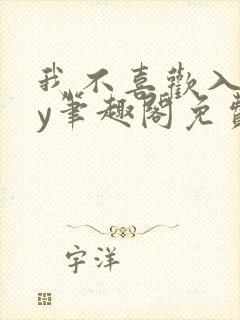 我不喜歡入
y筆趣閣免費
宇洋